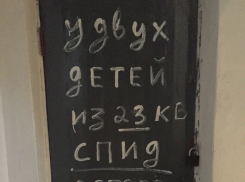 У ДВУХ
ДЕТЕЙ
ИЗ 23 КВ
СПИД